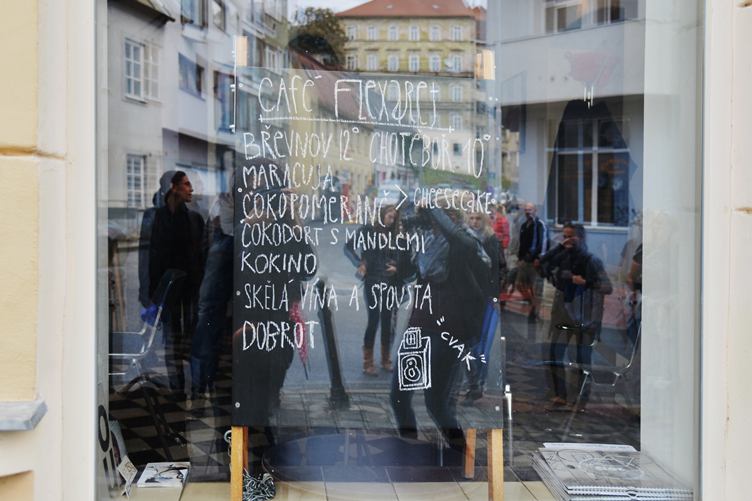 CAFÉ FLEXARET
BŘEVNOV 12° CHOTĚBOŘ 10°
MARACUJA
ČOKOPOMERANČ > CHEESECAKE
ČOKODORT S MANDLEMI
KOKINO
SKĚLÁ VÍNA A SPOUSTA
DOBROT
"CVAK"
8